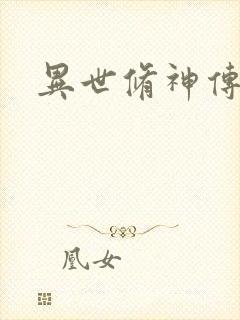 異世脩神傳
凰女